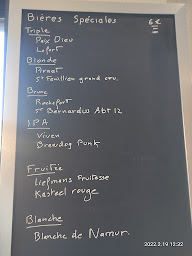 Bières Spéciales
6€
Triple
Paix Dieu
Lefort
Blonde
St Feuillien grand cru.
Brune
Rochefort
St Bernardus Abt 12
IPA
Viven
Brewdog Punk
Fruitée
Liefmans Fruitesse
Kasteel rouge
Blanche
Blanche de Namur.
2022.3.19 12:22